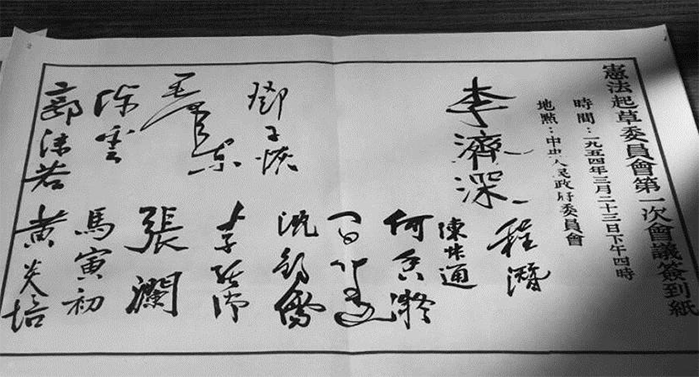 憲法起草委員會第一次會議簽到紙
時間：一九五四年三月二十三日下午四時
地點：中央人民政府委員會
李濟深
鄧子恢
毛澤東
陳雲
郭沫若
程潛
陳叔通
何香凝
沈鈞儒
張瀾
馬寅初
黃炎培